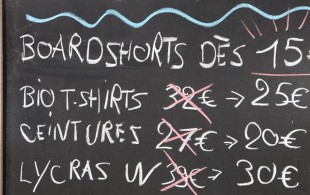 BOARDSHORTS DÈS 15€
BIO T.SHIRTS 32€ → 25€
CEINTURES 27€ → 20€
LYCRAS UV 39€ → 30€